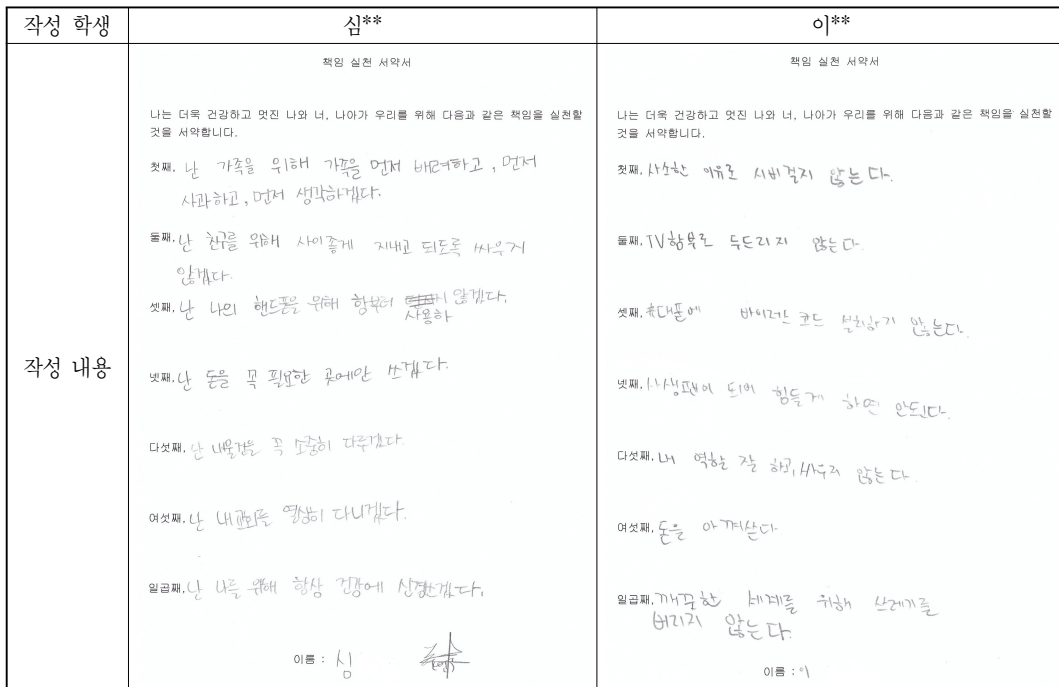 작성 학생
심**
이**
작성 내용
책임 실천 서약서
나는 더욱 건강하고 멋진 나와 너, 나아가 우리를 위해 다음과 같은 책임을 실천할
것을 서약합니다.
첫째, 난 가족을 위해 가족을 먼저 배려하고, 먼저
사과하고, 먼저 생각하겠다.
둘째, 난 친구를 위해 사이좋게 지내고 되도록 싸우지
않겠다.
셋째, 난 나의 핸드폰을 위해 함부러 않겠다.
사용하
넷째, 난 돈을 꼭 필요한 곳에만 쓰겠다.
다섯째, 난 내물건을 꼭 소중히 다루겠다.
여섯째, 난 내교회를 열심히 다니겠다.
일곱째, 난 나를 위해 항상 건강에 신경쓰겠다.
이름 : 심
책임 실천 서약서
나는 더욱 건강하고 멋진 나와 너, 나아가 우리를 위해 다음과 같은 책임을 실천할
것을 서약합니다.
첫째, 사소한 이유로 시비걸지 않는다.
둘째, TV함부로 두드리지 않는다.
셋째, 휴대폰에 바이러스 코드 설치하기 않는다.
넷째, 사생팬이 되어 힘들게 하면 안된다.
다섯째, 내 역할 잘 하고, 싸우지 않는다.
여섯째, 돈을 아껴쓴다
일곱째, 깨끗한 세계를 위해 쓰레기를
버리지 않는다.
이름 : 이